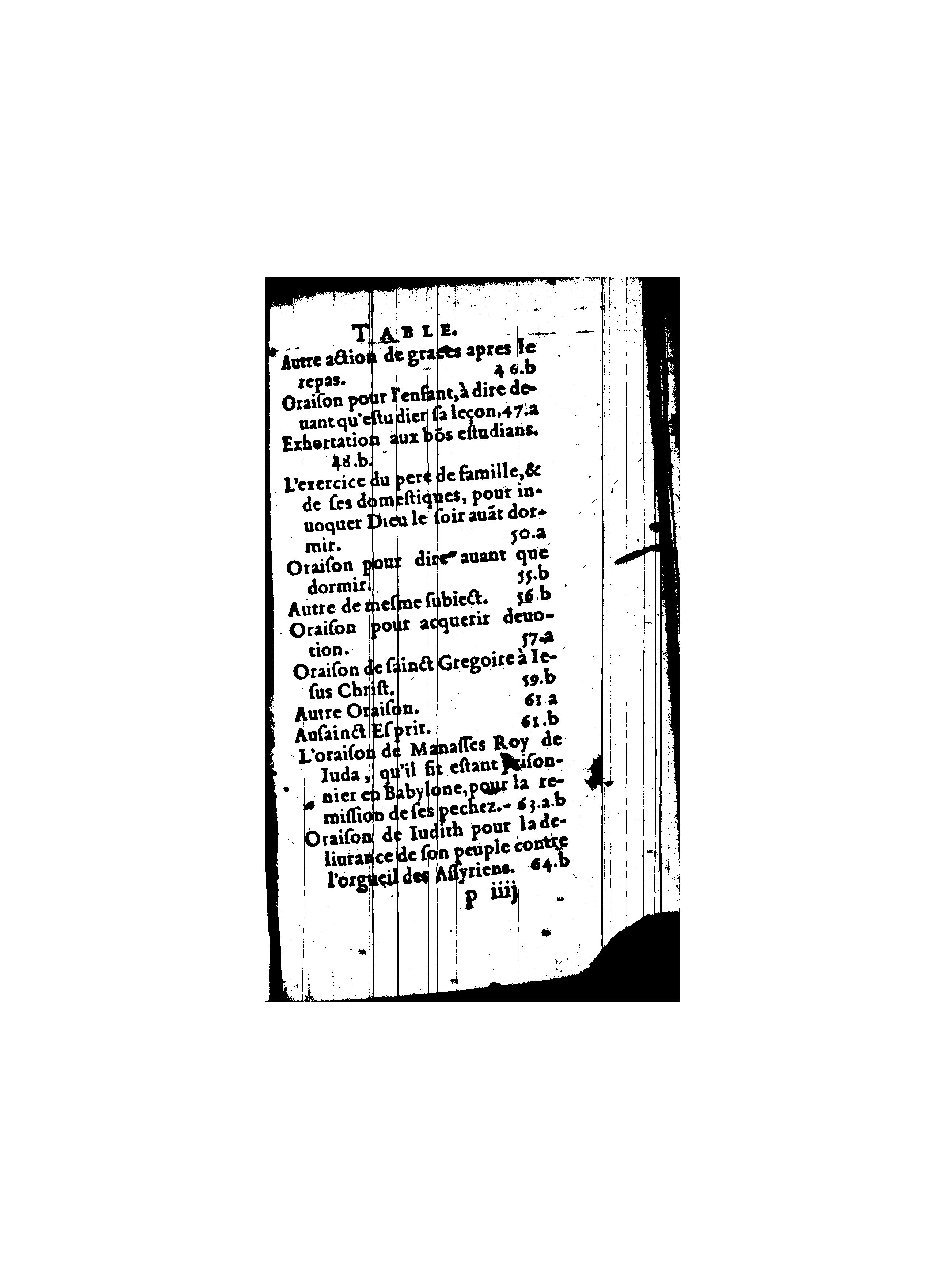 TABLE.
Autre action de graces apres le
repas. 46.b
Oraiſon pour l'enfant, à dire de-
uant qu'eſtudier ſa leçon, 47.a
Exhortation aux bõs eſtudians.
48.b.
L'exercice du pere de famille, &
de ſes domeſtiques, pour in-
uoquer Dieu le ſoir auãt dor-
mir. 50.a
Oraiſon pour dire auant que
dormir. 55.b
Autre de meſme ſubiect. 56.b
Oraiſon pour acquerir deuo-
tion. 57.a
Oraiſon de ſainct Gregoire à Ie-
ſus Chriſt. 59.b
Autre Oraiſon. 61 a
Au ſainct Eſprit. 61.b
L'oraiſon de Manaſſes Roy de
Iuda, qu'il fit eſtant priſon-
nier en Babylone, pour la re-
miſſion de ſes pechez. - 63.a.b
Oraiſon de Iudith pour la de-
liurance de ſon peuple contre
l'orgueil des Aſſyriens. 64.b
p iiij